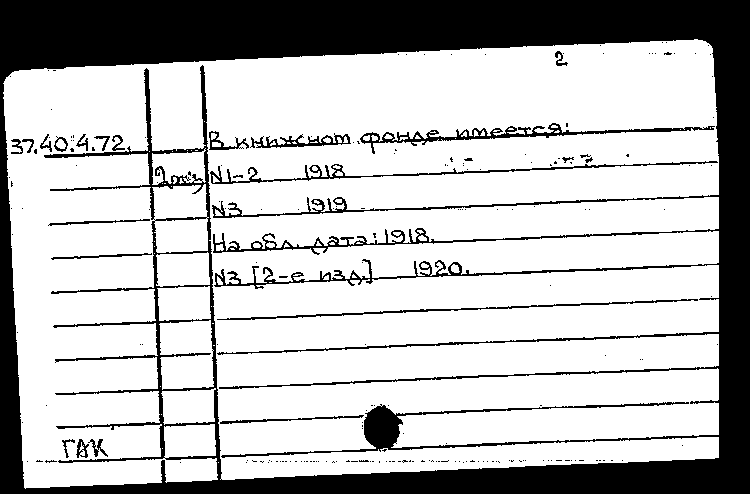 2
37.40.4.72. В книжном фонде имеется:
2экз N1-2 1918
N3 1919
На обл. дата: 1918.
N3 [2-е изд.] 1920.
ГАК